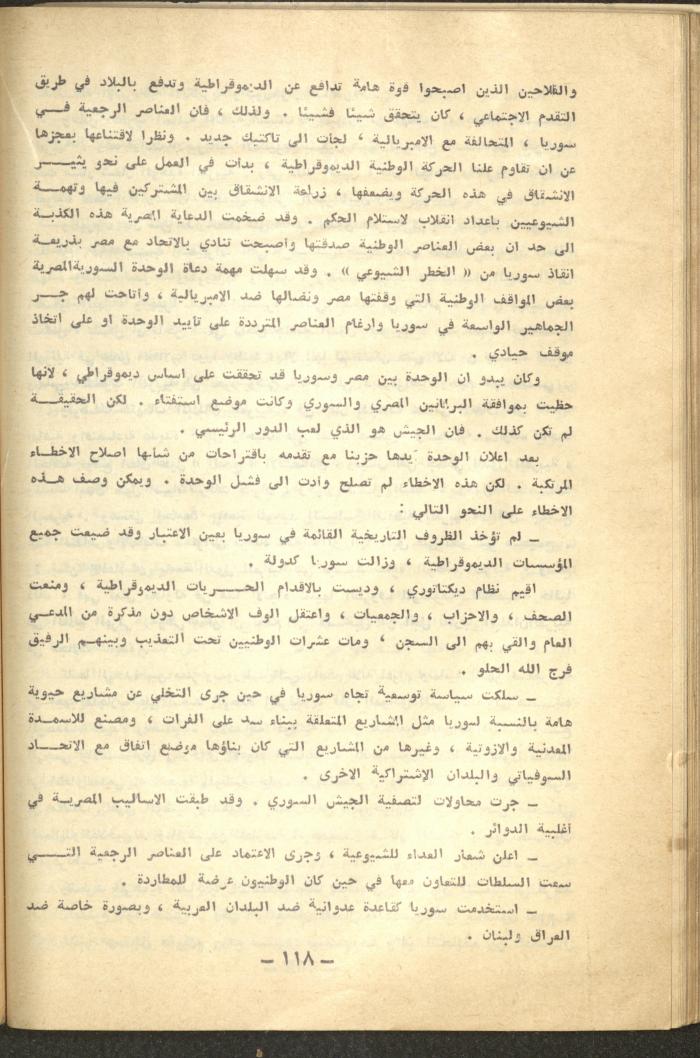 والفلاحين الذين اصبحوا قوة هامة تدافع عن الديموقراطية وتدفع بالبلاد في طريق
التقدم الاجتماعي ، كان يتحقق شيئا فشيئا . ولذلك ، فان العناصر الرجعية فـــي
سوريا ، المتحالفة مع الامبريالية ، لجأت الى تاكتيك جديد . ونظرا لاقتناعها بعجزها
عن ان تقاوم علنا الحركة الوطنية الديموقراطية ، بدأت في العمل على نحو يثيـــر
الانشقاق في هذه الحركة ويضعفها ، زراعة الانشقاق بين المشتركين فيها وتهمــة
الشيوعيين باعداد انقلاب لاستلام الحكم . وقد ضخمت الدعاية المصرية هذه الكذبة
الى حد ان بعض العناصر الوطنية صدقتها وأصبحت تنادي بالاتحاد مع مصر بذريعـة
انقاذ سوريا من « الخطر الشيوعي » . وقد سهلت مهمة دعاة الوحدة السوريةالمصرية
بعض المواقف الوطنية التي وقفتها مصر ونضالها ضد الامبريالية ، وأتاحت لهم جــر
الجماهير الواسعة في سوريا وارغام العناصر المترددة على تأييد الوحدة او على اتخاذ
موقف حيادي .
وكان يبدو ان الوحدة بين مصر وسوريا قد تحققت على اساس ديموقراطي ، لانها
حظيت بموافقة البرلمانين المصري والسوري وكانت موضع استفتاء . لكن الحقيقــة
لم تكن كذلك . فان الجيش هو الذي لعب الدور الرئيسي .
بعد اعلان الوحدة أيدها حزبنا مع تقدمه باقتراحات من شأنها اصلاح الاخطــاء
المرتكبة . لكن هذه الاخطاء لم تصلح وأدت الى فشل الوحدة . ويمكن وصف هــذه
الاخطاء على النحو التالي :
ـ لم تؤخذ الظروف التاريخية القائمة في سوريا بعين الاعتبار وقد ضيعت جميع
المؤسسات الديموقراطية ، وزالت سوريا كدولة .
اقيم نظام ديكتاتوري ، وديست بالاقدام الحـــريات الديموقراطية ، ومنعت
الصحف ، والاحزاب ، والجمعيات ، واعتقل الوف الاشخاص دون مذكرة من المدعـي
العام والقي بهم الى السجن ، ومات عشرات الوطنيين تحت التعذيب وبينهـم الرفيق
فرج الله الحلو .
ـ سلكت سياسة توسعية تجاه سوريا في حين جرى التخلي عن مشاريع حيوية
هامة بالنسبة لسوريا مثل المشاريع المتعلقة ببناء سد على الفرات ، ومصنع للاسمـدة
المعدنية والازوتية ، وغيرها من المشاريع التي كان بناؤها موضع اتفاق مع الاتحــاد
السوفياتي والبلدان الإشتراكية الاخرى .
ـ جرت محاولات لتصفية الجيش السوري . وقد طبقت الاساليب المصريـة في
أغلبية الدوائر .
ـ اعلن شعار العداء للشيوعية ، وجرى الاعتماد على العناصر الرجعية التــــي
سعت السلطات للتعاون معها في حين كان الوطنيون عرضة للمطاردة .
ـ استخدمت سوريا كقاعدة عدوانية ضد البلدان العربية ، وبصورة خاصة ضد
العراق ولبنان .
ـ ١١٨ ـ